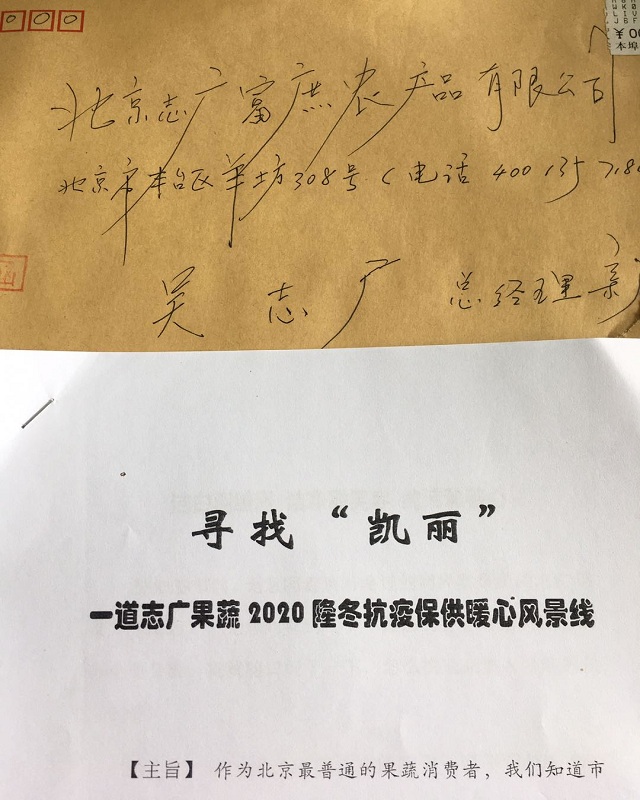 ¥00
本埠
北京志广富庶农产品有限公司
北京市丰台区羊坊308号(电话 400 135
吴志广 总经理 亲
寻找“凯丽”
一道志广果蔬2020隆冬抗疫保供暖心风景线
【主旨】 作为北京最普通的果蔬消费者，我们知道市